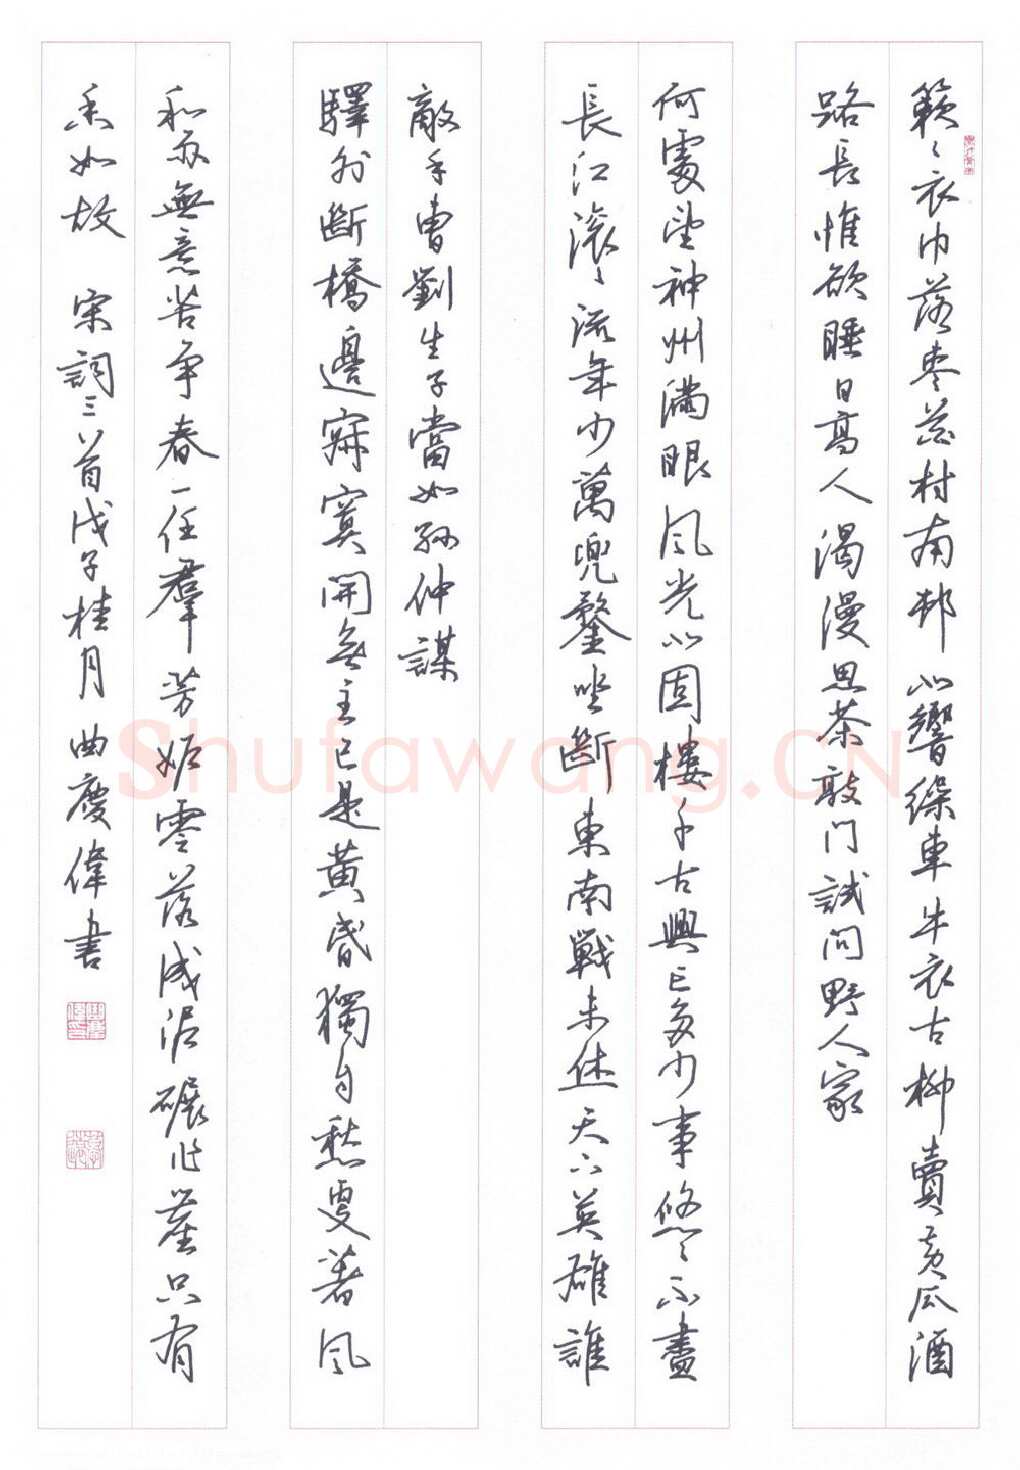 簌〻衣巾落枣花村南邨北響繰車牛衣古柳賣黄瓜酒
路長惟欲睡日高人渴漫思茶敲门試问野人家
何處望神州滿眼風光北固樓千古興亡多少事悠〻不盡
長江滾〻流年少萬兜鍪坐斷東南戰未休天下英雄誰
敵手曹劉生子當如孫仲謀
驛外斷橋邊寂寞開無主已是黄昏獨自愁更著風
和雨無意苦争春一任羣芳妒零落成泥碾作塵只有
香如故 宋詞三首戊子桂月曲慶偉書
Shufawang.CN